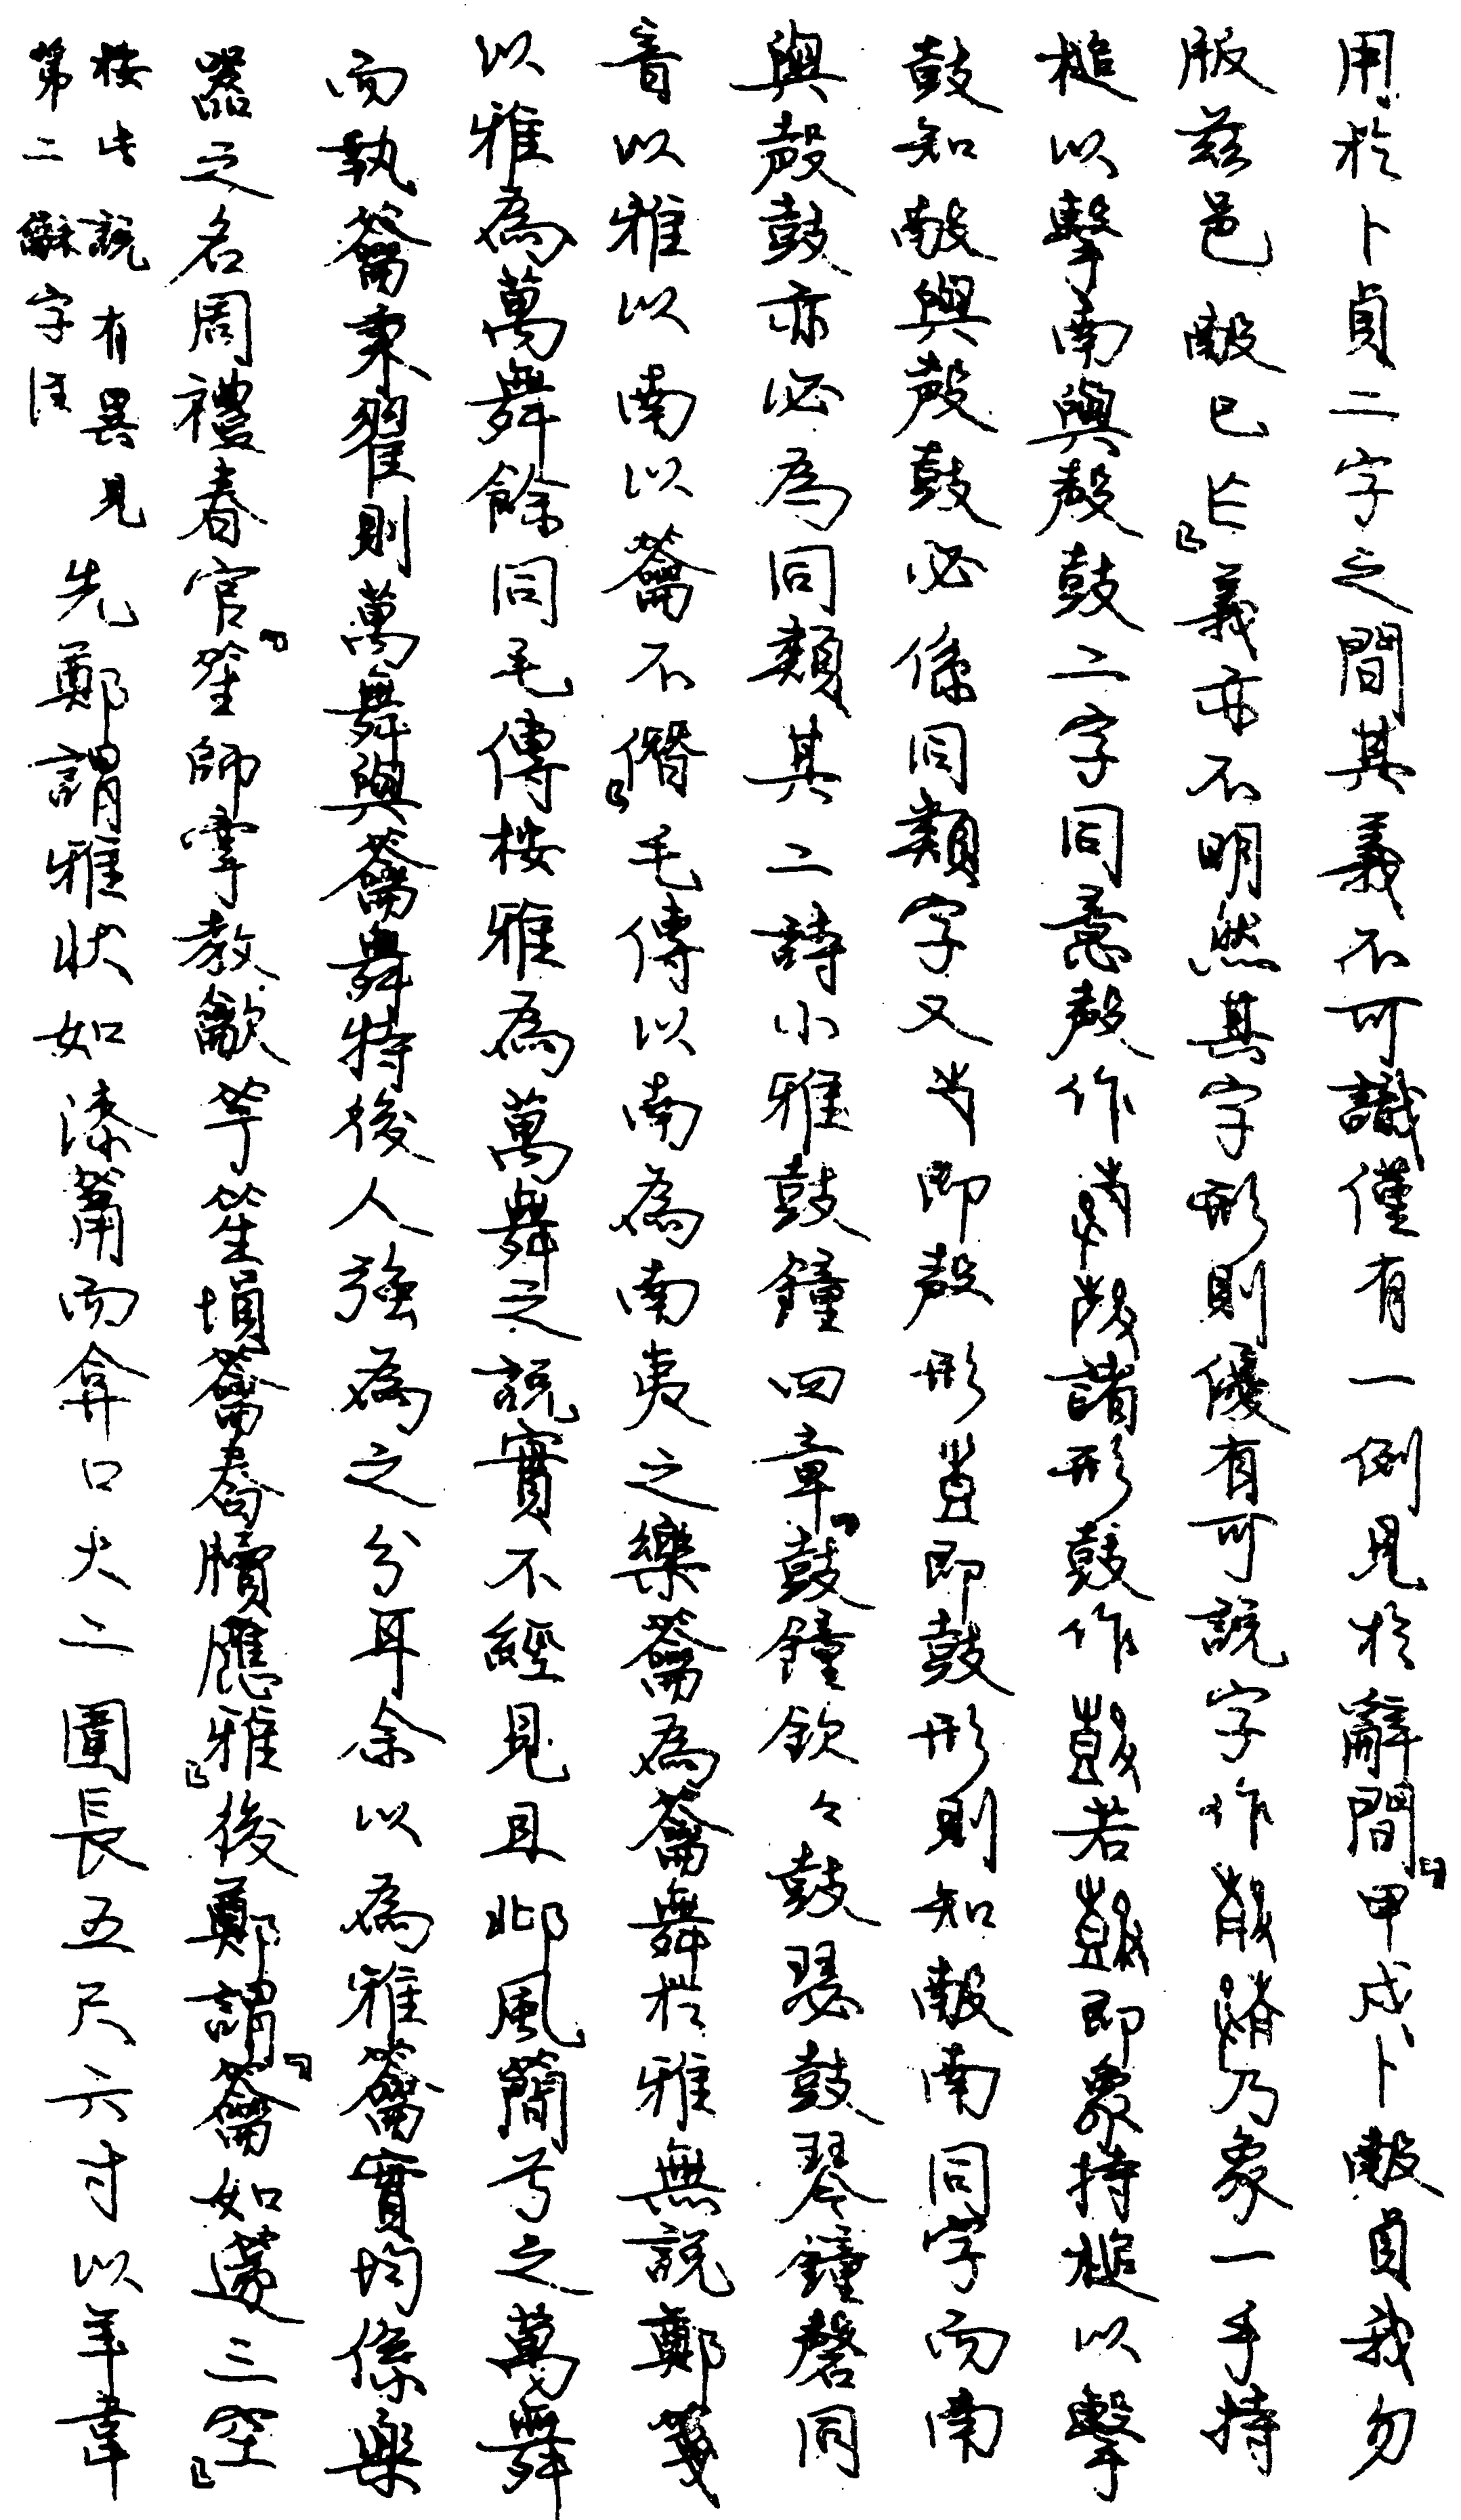 用於卜貞二字之間其義不可識僅有一例見於辭間「甲戌卜㪟貞我勿
㱾茲邑㪟已乍」義亦不明然其字形則優有可說字作乃象一手持
槌以擊南與殸鼓二字同意殸作諸形鼓作若即象持槌以擊
鼓知㪟與殸鼓必係同類字又即殸形壴即鼓形則知㪟南同字而南
與殸鼓亦必為同類其二詩小雅鼓鐘四章「鼓鐘欽々鼓瑟鼓琴鐘磬同
音以雅以南以籥不僭」毛傳以南為南夷之樂籥為籥舞於雅無說鄭箋
以雅為萬舞餘同毛傳按雅為萬舞之說實不經見且邶風簡兮之萬舞
而執籥秉翟則萬舞與籥舞特後人強為之分耳余以為雅籥實均係樂
器之名周禮春官「笙師掌教龡竽笙塤籥舂牘應雅」後鄭謂「籥如篴三空」
按此說有異見
第二龢字注
先鄭謂雅狀如漆筩而弇口大二圍長五尺六寸以羊韋